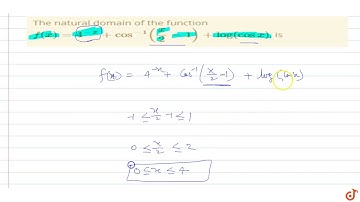 The natural domain of the function
f(x) = 4^{-x} + cos^{-1}(x/2 - 1) + log(cos x), is
f(x) = 4^{-x} + Cos^{-1}(x/2 - 1) + log (Cos x)
-1 ≤ x/2 - 1 ≤ 1
0 ≤ x/2 ≤ 2
0 ≤ x ≤ 4